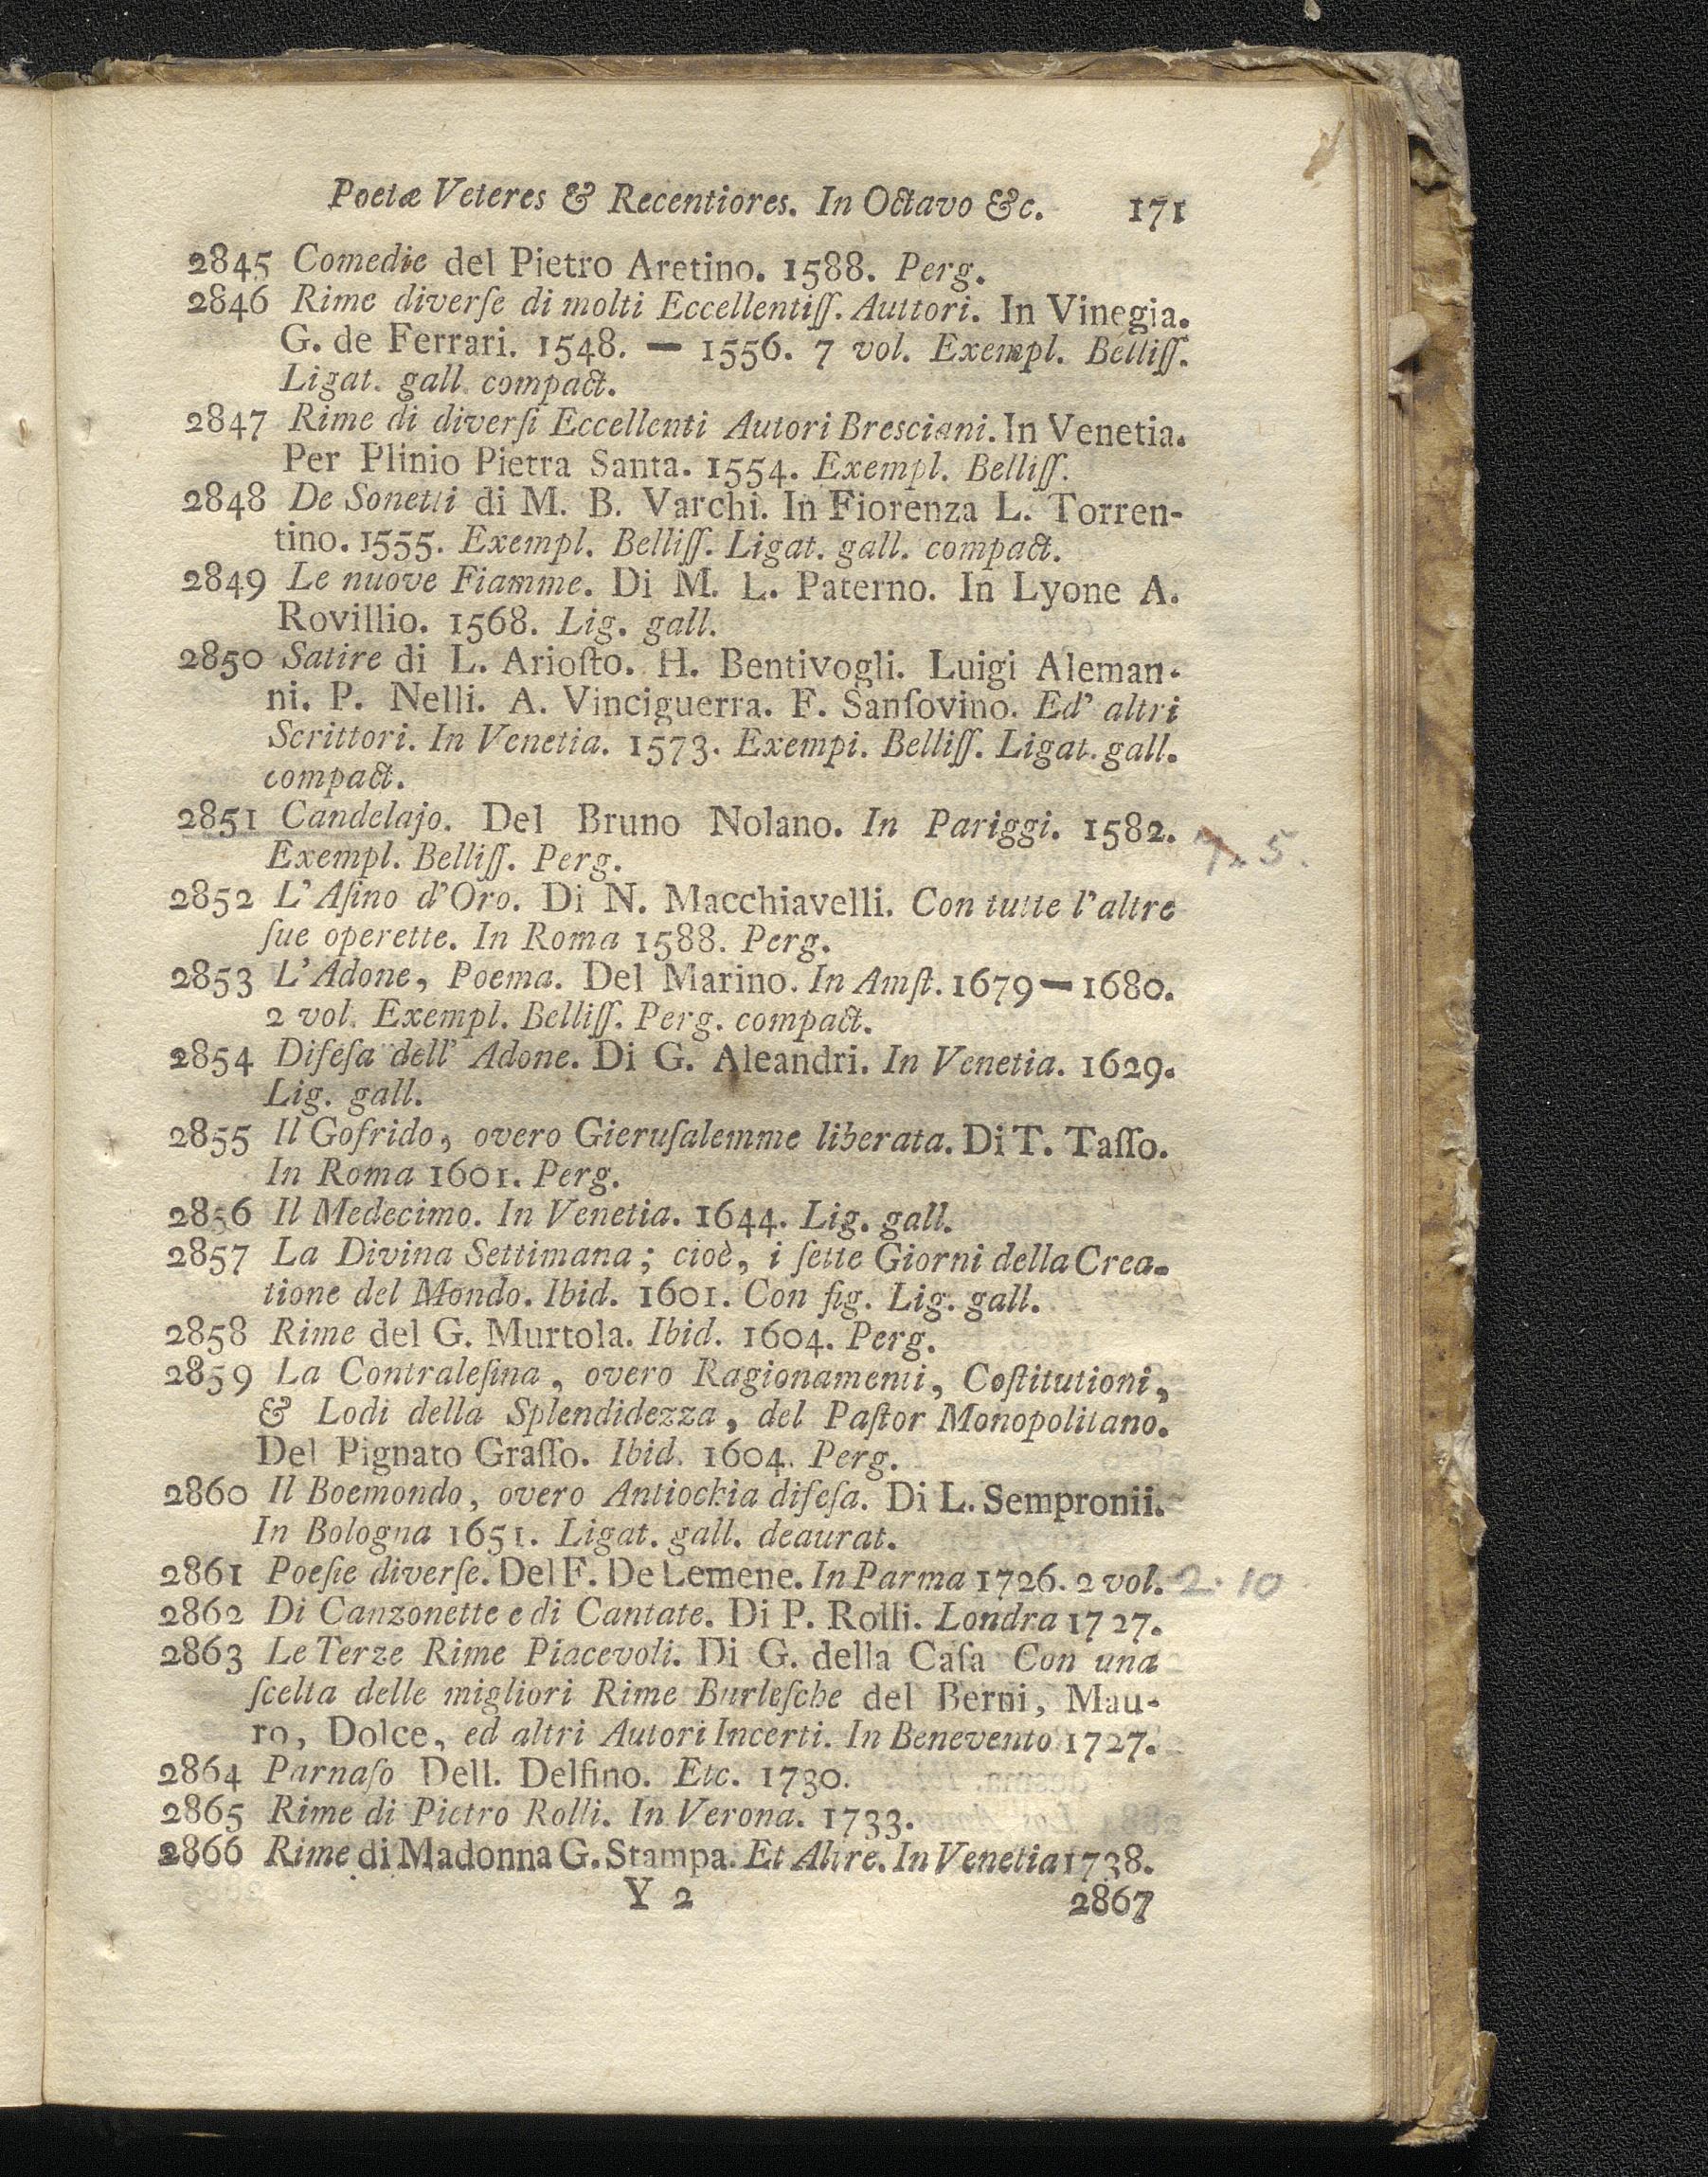 Poetæ Veteres & Recentiores. In Octavo &c. 171
2845 Comedie del Pietro Aretino. 1588. Perg.
2846 Rime diverſe di molti Eccellentiſſ. Auttori. In Vinegia.
G. de Ferrari. 1548. — 1556. 7 vol. Exempl. Belliſſ.
Ligat. gall. compact.
2847 Rime di diverſi Eccellenti Autori Bresciani. In Venetia.
Per Plinio Pietra Santa. 1554. Exempl. Belliſſ.
2848 De Sonetti di M. B. Varchi. In Fiorenza L. Torren-
tino. 1555. Exempl. Belliſſ. Ligat. gall. compact.
2849 Le nuove Fiamme. Di M. L. Paterno. In Lyone A.
Rovillio. 1568. Lig. gall.
2850 Satire di L. Arioſto. H. Bentivogli. Luigi Aleman-
ni. P. Nelli. A. Vinciguerra. F. Sanſovino. Ed' altri
Scrittori. In Venetia. 1573. Exempi. Belliſſ. Ligat. gall.
compact.
2851 Candelajo. Del Bruno Nolano. In Pariggi. 1582. 5.
Exempl. Belliſſ. Perg.
2852 L'Aſino d'Oro. Di N. Macchiavelli. Con tutte l'altre
ſue operette. In Roma 1588. Perg.
2853 L'Adone, Poema. Del Marino. In Amſt. 1679—1680.
2 vol. Exempl. Belliſſ. Perg. compact.
2854 Difeſa dell' Adone. Di G. Aleandri. In Venetia. 1629.
Lig. gall.
2855 Il Gofrido, overo Gieruſalemme liberata. Di T. Taſſo.
In Roma 1601. Perg.
2856 Il Medecimo. In Venetia. 1644. Lig. gall.
2857 La Divina Settimana; cioè, i ſette Giorni della Crea-
tione del Mondo. Ibid. 1601. Con fig. Lig. gall.
2858 Rime del G. Murtola. Ibid. 1604. Perg.
2859 La Contraleſina, overo Ragionamenti, Coſtitutioni,
& Lodi della Splendidezza, del Paſtor Monopolitano.
Del Pignato Graſſo. Ibid. 1604. Perg.
2860 Il Boemondo, overo Antiochia difeſa. Di L. Sempronii.
In Bologna 1651. Ligat. gall. deaurat.
2861 Poeſie diverſe. Del F. De Lemene. In Parma 1726. 2 vol. 2.10
2862 Di Canzonette e di Cantate. Di P. Rolli. Londra 1727.
2863 Le Terze Rime Piacevoli. Di G. della Caſa Con una
ſcelta delle migliori Rime Burleſche del Berni, Mau-
ro, Dolce, ed altri Autori Incerti. In Benevento 1727.
2864 Parnaſo Dell. Delfino. Etc. 1730.
2865 Rime di Pietro Rolli. In Verona. 1733.
2866 Rime di Madonna G. Stampa. Et Altre. In Venetia 1738.
Y 2 2867